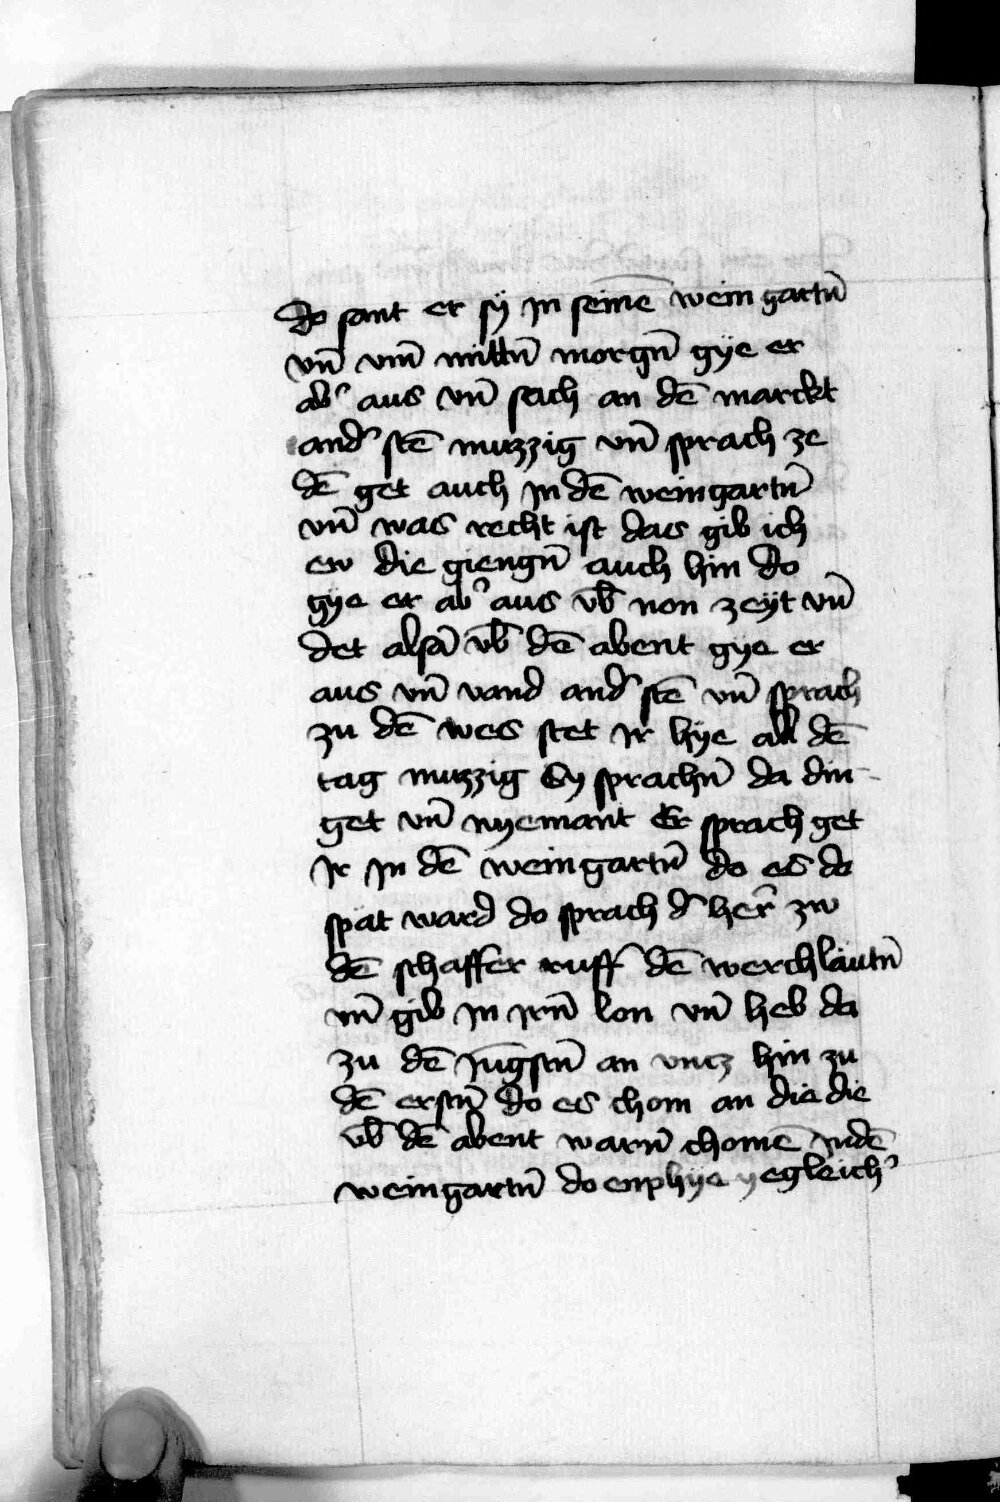 do sant er sÿ jn seinē̄ wein gartn̄
vn̄ vm̄ mittn̄ morgn̄ gÿe er
ab᾽ aus vn̄ sach an dē marckt
and᾽ stē muzzig vn̄ sprach ze
dē get auch jn dē weingartn̄
vn̄ was recht ist das gib ich
ew die giengn̄ auch hin do
gÿe er ab᾽ aus vb̄ non zeÿt vn̄
det alsā vb̄ dē abent gÿe er
aus vn̄ vand and᾽ stē vn̄ sprach
zu dē wes stet jr hÿe all dē
tag muzzig Sy sprachn̄ da din-
get vn̄ nyemant Er sprach get
jr jn dē weingartn̄ do es do
spät ward do sprach d᾽ her̄ zw
dē schaffer ruff dē werchläutn̄
vn̄ gib jn jrn̄ lon vn̄ heb da
zu dē jūgstn̄ an vncz hin zu
dē erstn̄ do es chom an die die
vb̄ dē abent warn̄ chomē jndē
weingartn̄ do enphÿe yegleich᾽